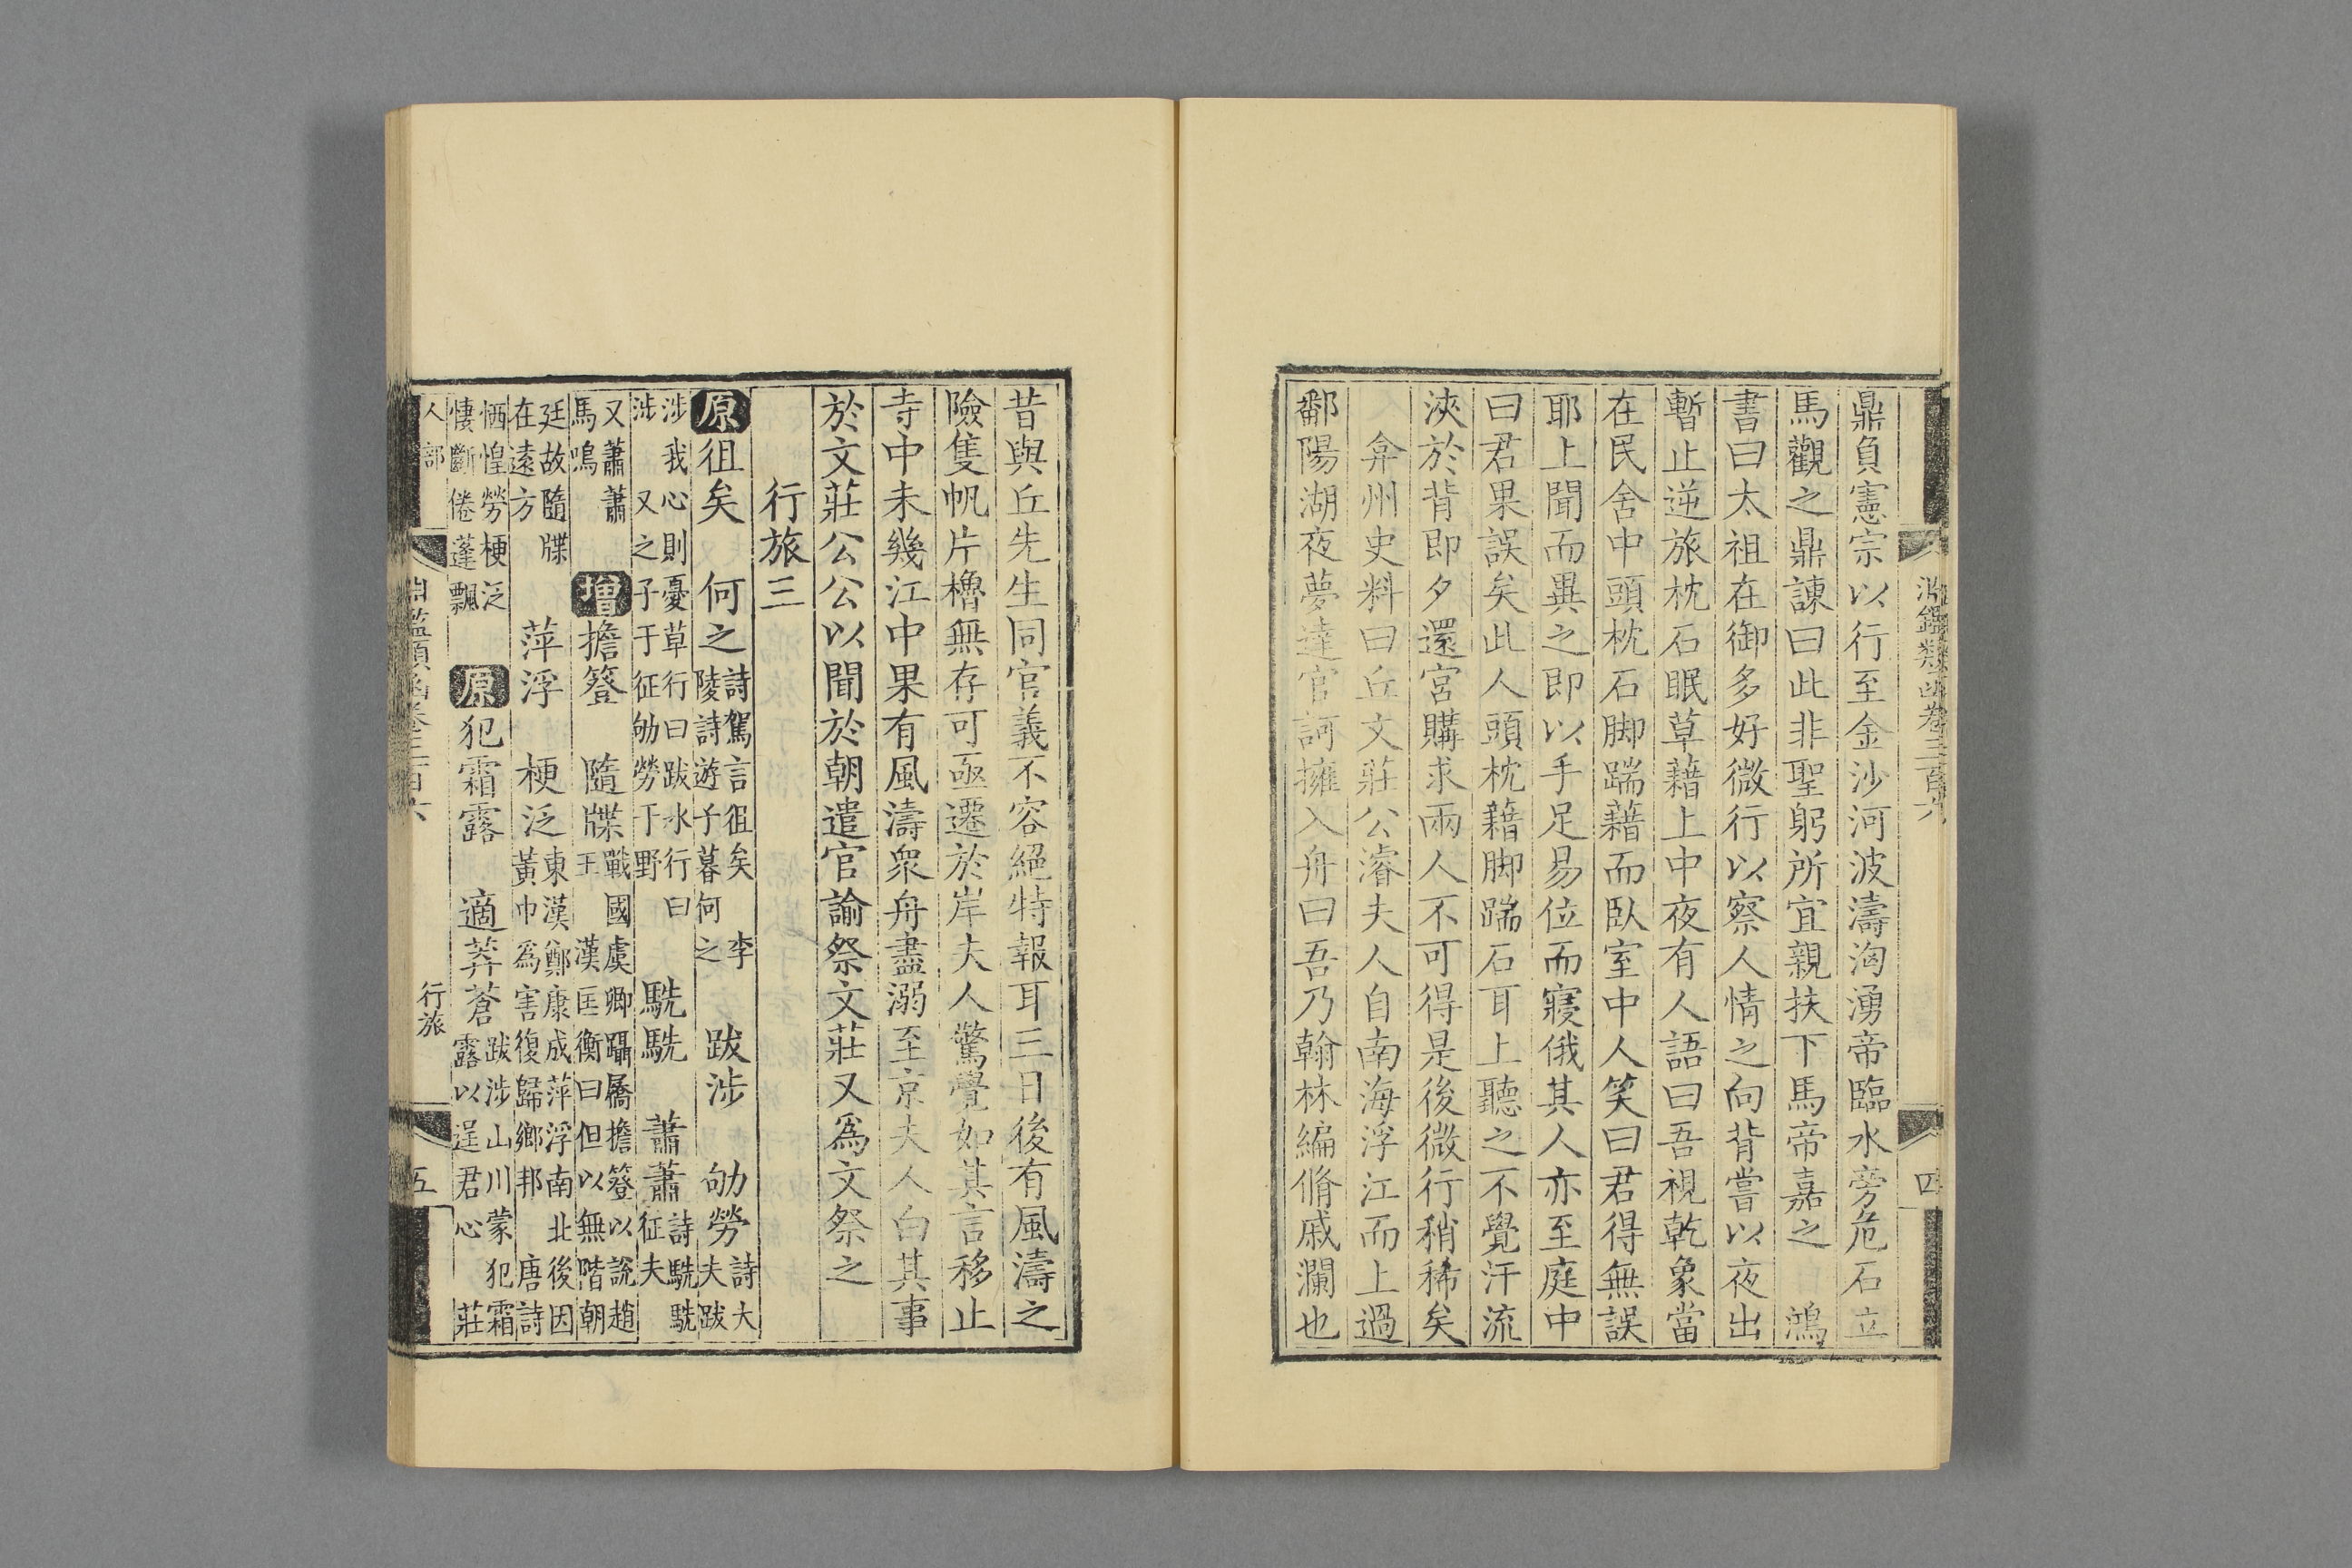 淵鑑類函卷三百六
四
鼎負憲宗以行至金沙河波濤洶湧帝臨水旁危石立
馬觀之鼎諫曰此非聖躬所宜親扶下馬帝嘉之　鴻
書曰太祖在御多好微行以察人情之向背嘗以夜出
暫止逆旅枕石眠草藉上中夜有人語曰吾視乾象當
在民舍中頭枕石脚踹藉而臥室中人笑曰君得無誤
耶上聞而異之即以手足易位而寢俄其人亦至庭中
曰君果誤矣此人頭枕藉脚踹石耳上聽之不覺汗流
浹於背即夕還宮購求兩人不可得是後微行稍稀矣
弇州史料曰丘文莊公濬夫人自南海浮江而上過
鄱陽湖夜夢達官訶擁入舟曰吾乃翰林編脩戚瀾也
昔與丘先生同官義不容絕特報耳三日後有風濤之
險隻帆片櫓無存可亟遷於岸夫人驚覺如其言移止
寺中未幾江中果有風濤衆舟盡溺至京夫人白其事
於文莊公公以聞於朝遣官諭祭文莊又爲文祭之
行旅三
原徂矣　何之詩駕言徂矣　李陵詩遊子暮何之　跋涉　劬勞詩大夫跋
涉我心則憂草行曰跋水行曰涉　又之子于征劬勞于野　駪駪　蕭蕭詩駪駪征夫
又蕭蕭馬鳴　增擔簦　隨牒戰國虞卿躡屩擔簦以說趙王　漢匡衡曰但以無階朝
廷故隨牒在遠方　萍浮　梗泛東漢鄭康成萍浮南北後因黃巾爲害復歸鄉邦　唐詩
恓惶勞梗泛悽斷倦蓬飄　原犯霜露　適莽蒼跋涉山川蒙犯霜露以逞君心　莊
人部
淵鑑類函卷三百六
行旅
五